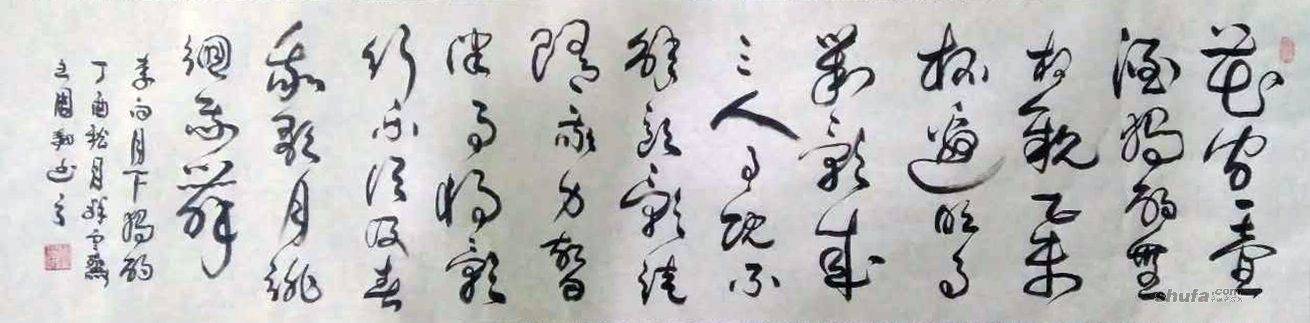 花間一壺
酒獨酌無
相親舉
杯邀明月
對影成
三人月既不
解飲影徒
隨我身暫
伴月將影
行樂須及春
我歌月徘
徊我舞
李白月下獨酌
丁酉秋月
shufa.com